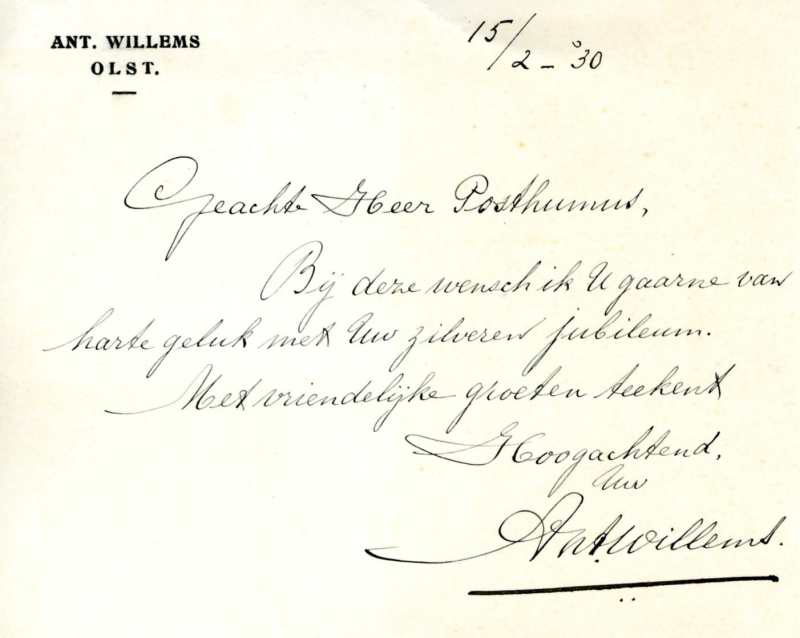 ANT. WILLEMS
OLST.
15/2 - '30
Geachte Heer Posthumus,
Bij deze wensch ik U gaarne van
harte geluk met Uw zilveren jubileum.
Met vriendelijke groeten teekent
Hoogachtend,
Uw
Ant. Willems.